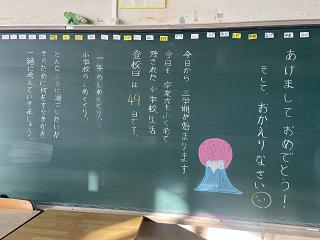 あけまして おめでとう！
そして、おかえりなさい
今日から 三学期が始まります。
今日も 卒業式もふくめて、
残された小学校生活
登校日は 49 日です。
一年のしめくくり、
小学校のしめくくり。
どんなふうに過ごしたい？！
そのために何をすべきかを
一緒に考えていきましょう。